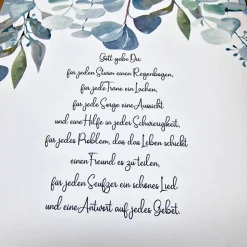 Gott gebe Dir
für jeden Sturm einen Regenbogen,
für jede Träne ein Lachen,
für jede Sorge eine Aussicht
und eine Hilfe in jeder Schwierigkeit,
für jedes Problem, das das Leben schickt
einen Freund es zu teilen,
für jeden Seufzer ein schönes Lied
und eine Antwort auf jedes Gebet.